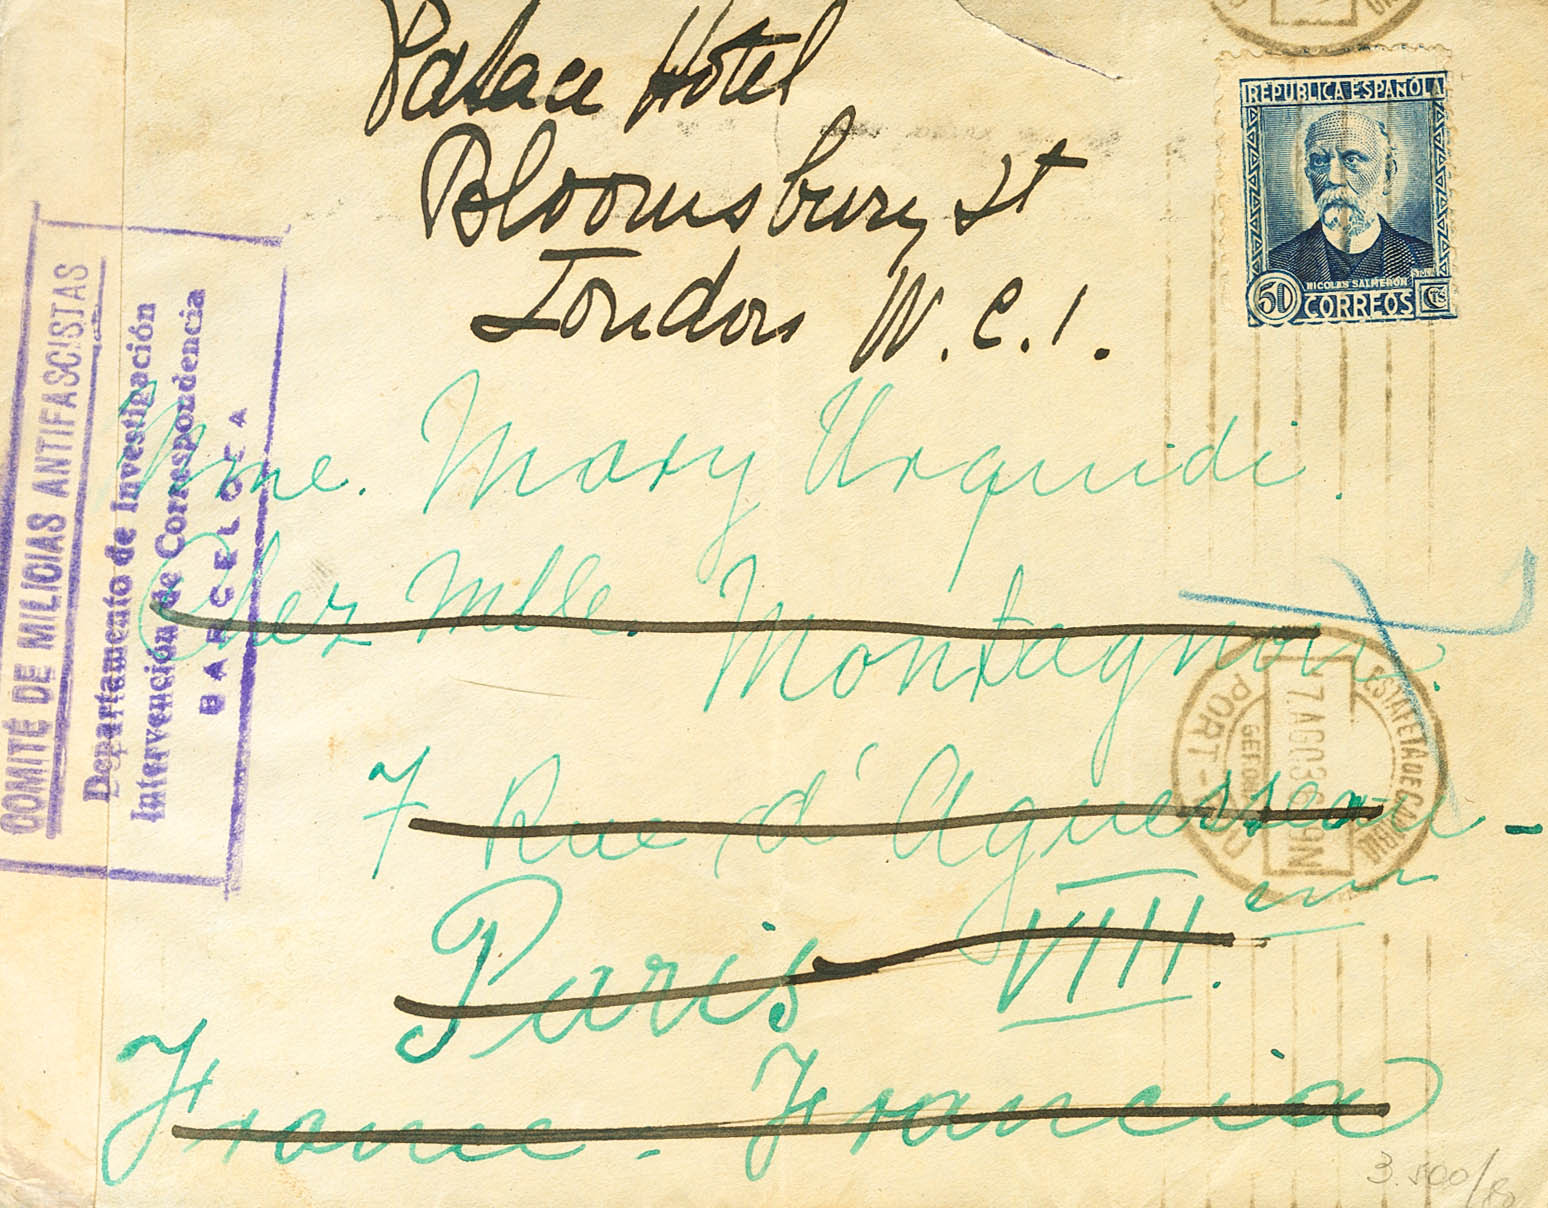 Palace Hotel
Bloomsbury St
London W.C.1.
REPUBLICA ESPAÑOLA
NICOLAS SALMERÓN
50 CORREOS Cts
COMITÉ DE MILICIAS ANTIFASCISTAS
Departamento de Investigación
Intervención de Correspondencia
BARCELONA
Mme. Mary Urquidi.
Chez Mlle. Montagnon.
7 Rue d'Aguesseau-
Paris VIIIem.
France - Francia
ESTAFETA DE CAMBIO
7.AGO36
PORT-BOU
3.500/